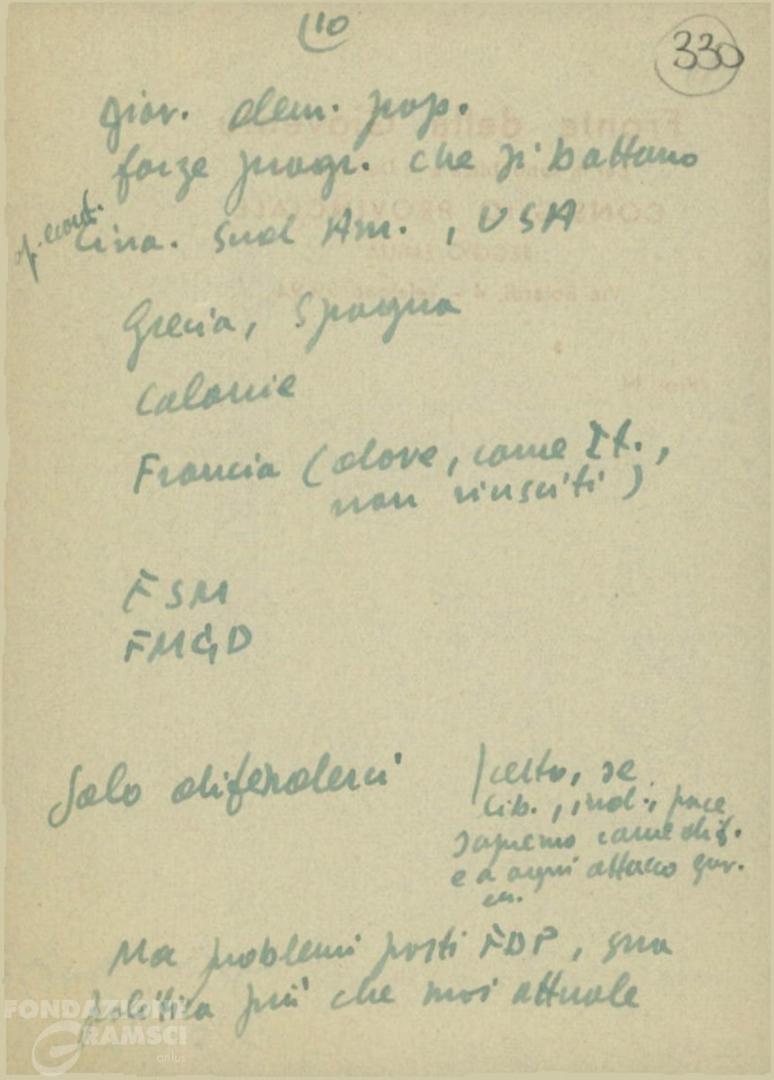 10
330
giov. dem. pop.
forze progr. che si battono
Cina. Sud Am., USA
Grecia, Spagna
Colonie
Francia (dove, come It.,
non riusciti)
FSM
FMGD
Solo difenderci
certo, se
lib., ind., pace
sapremo come dif.
e a ogni attacco gov.
Ma problemi posti FDP, sua
politica più che mai attuale
FONDAZIONE
GRAMSCI
onlus
Fronte della Gioventù
CONSIGLIO PROVINCIALE
REGGIO EMILIA